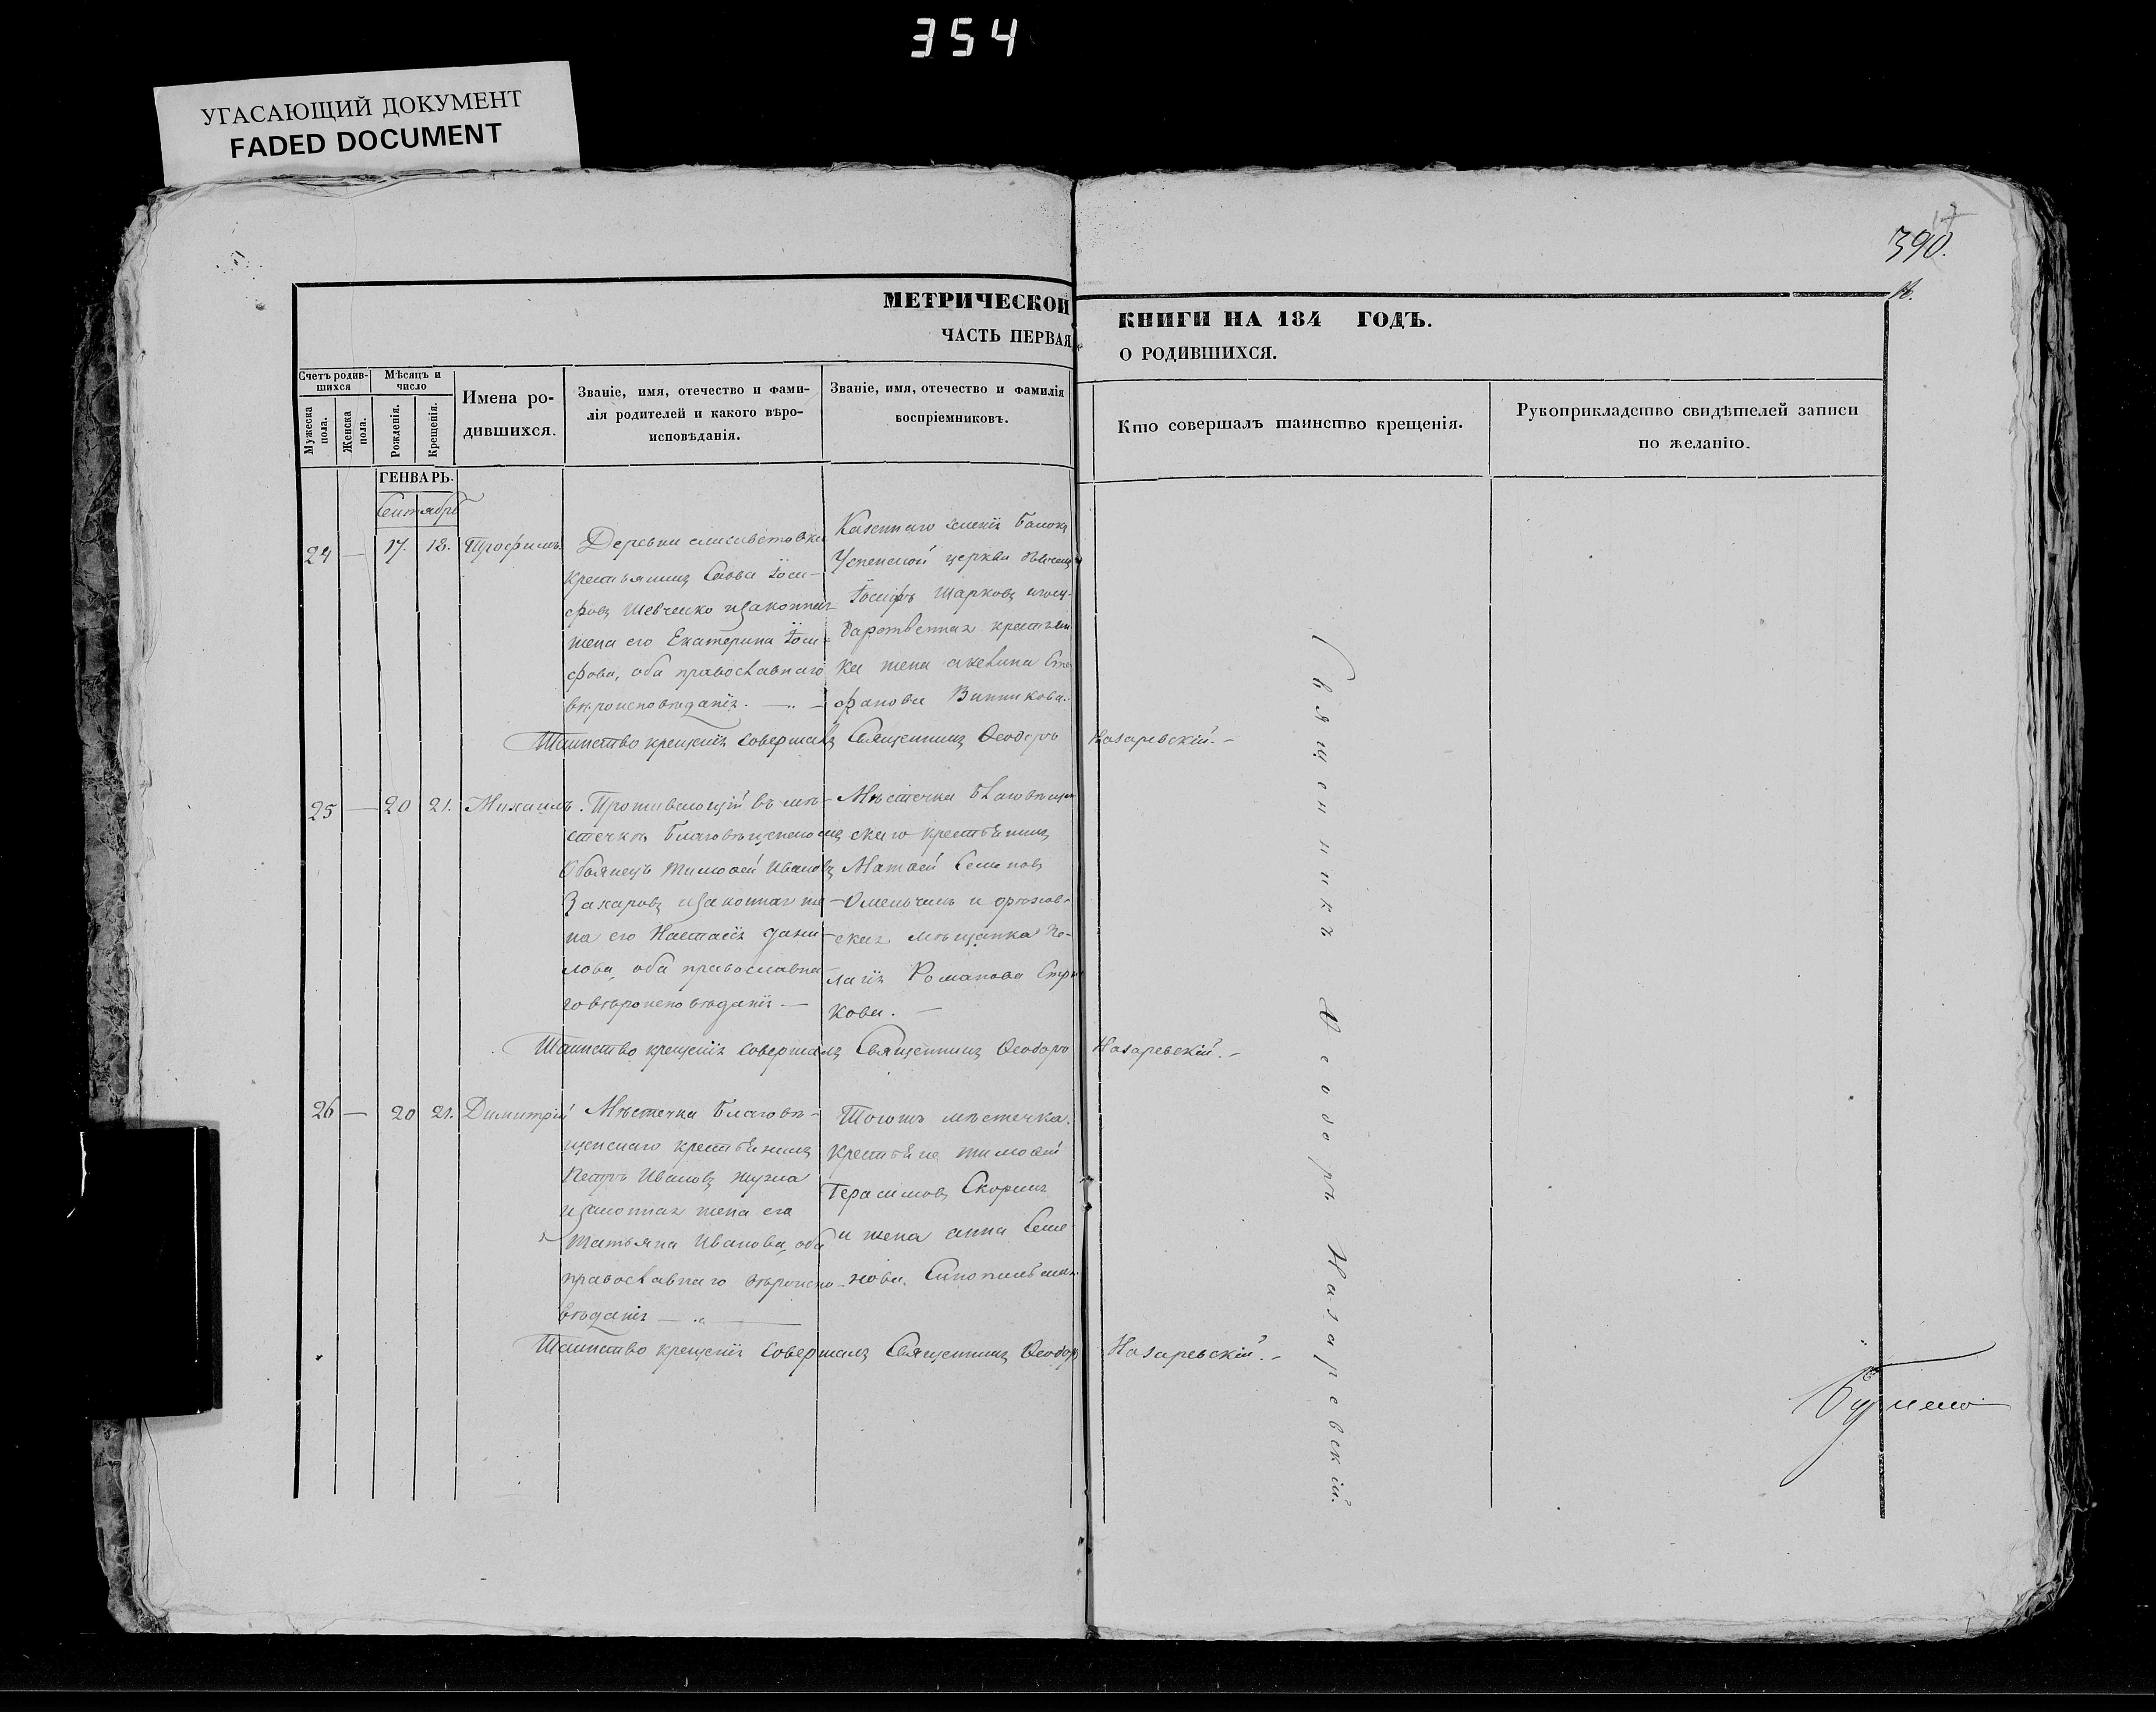 354
УГАСАЮЩИЙ ДОКУМЕНТ
FADED DOCUMENT
17
390.
МЕТРИЧЕСКОЙ
КНИГИ НА 184 ГОДЪ.
ЧАСТЬ ПЕРВАЯ
О РОДИВШИХСЯ.
Счетъ родив-
шихся
Мѣсяцъ и
число
Мужеска
пола.
Женска
пола.
Рожденія.
Крещенія.
Имена ро-
дившихся.
Званіе, имя, отечество и фами-
лія родителей и какого вѣро-
исповѣданія.
Званіе, имя, отечество и фамилія
воспріемниковъ.
Кто совершалъ таинство крещенія.
Рукоприкладство свидѣтелей записи
по желанію.
ГЕНВАРЬ.
Сентябрь
24 — 17. 18. Трофимъ.
Деревни Елисаветовки
крестьянинъ Савва Іоси-
фовъ Шевченко и законная
жена его Екатерина Іоси-
фова, оба православнаго
вѣроисповѣданія. —
Казеннаго селенія
Успенской церкви
Іосифъ Шарковъ и госу-
дарственная крестьян
ка жена Акелина Сте
фанова Винникова.
Таинство крещенія совершалъ Священникъ Ѳеодоръ Назаревскій. —
25 — 20 21. Михаилъ.
Проживающій въ мѣ-
стечкѣ Благовѣщенскомъ
Обаянецъ Тимоѳей Ивановъ
Захаровъ и законная же-
на его Настасія Дани-
лова, оба православна-
го вѣроисповѣданія —
Мѣстечка Благовѣщен
скаго крестьянинъ
Матѳей Семеновъ
Омельчинъ и
ская мѣщанка Пе-
лагія Романова
кова. —
Таинство крещенія совершалъ Священникъ Ѳеодоръ Назаревскій. —
26 — 20 21. Димитрій
Мѣстечка Благовѣ-
щенскаго крестьянинъ
Петръ Ивановъ
и законная жена его
Татьяна Иванова, оба
православнаго вѣроиспо-
вѣданія —
Тогожъ мѣстечка
крестьяне Тимоѳей
Герасимовъ
и жена Анна Семе
нова.
Таинство крещенія совершалъ Священникъ Ѳеодоръ Назаревскій. —
Священникъ Ѳеодоръ Назаревскій.